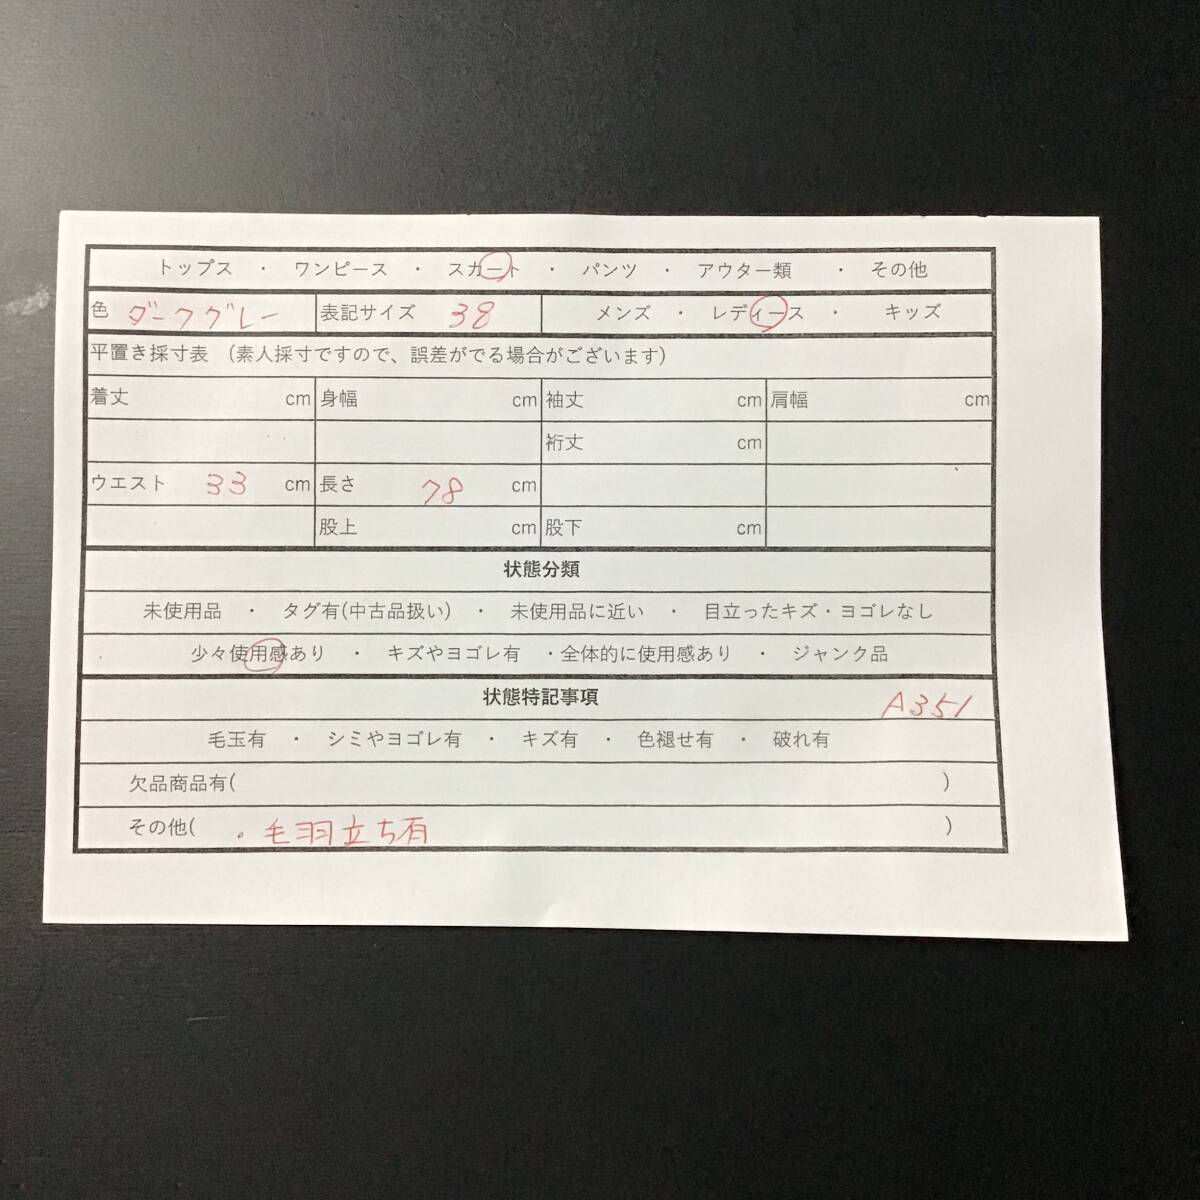 トップス ・ ワンピース ・ スカート ・ パンツ ・ アウター類 ・ その他
色 ダークグレー 表記サイズ 38 メンズ ・ レディース ・ キッズ
平置き採寸表 (素人採寸ですので、誤差がでる場合がございます)
着丈 cm 身幅 cm 袖丈 cm 肩幅 cm
裄丈 cm
ウエスト 33 cm 長さ 78 cm
股上 cm 股下 cm
状態分類
未使用品 ・ タグ有(中古品扱い) ・ 未使用品に近い ・ 目立ったキズ・ヨゴレなし
少々使用感あり ・ キズやヨゴレ有 ・全体的に使用感あり ・ ジャンク品
状態特記事項 A351
毛玉有 ・ シミやヨゴレ有 ・ キズ有 ・ 色褪せ有 ・ 破れ有
欠品商品有( )
その他( ・毛羽立ち有 )